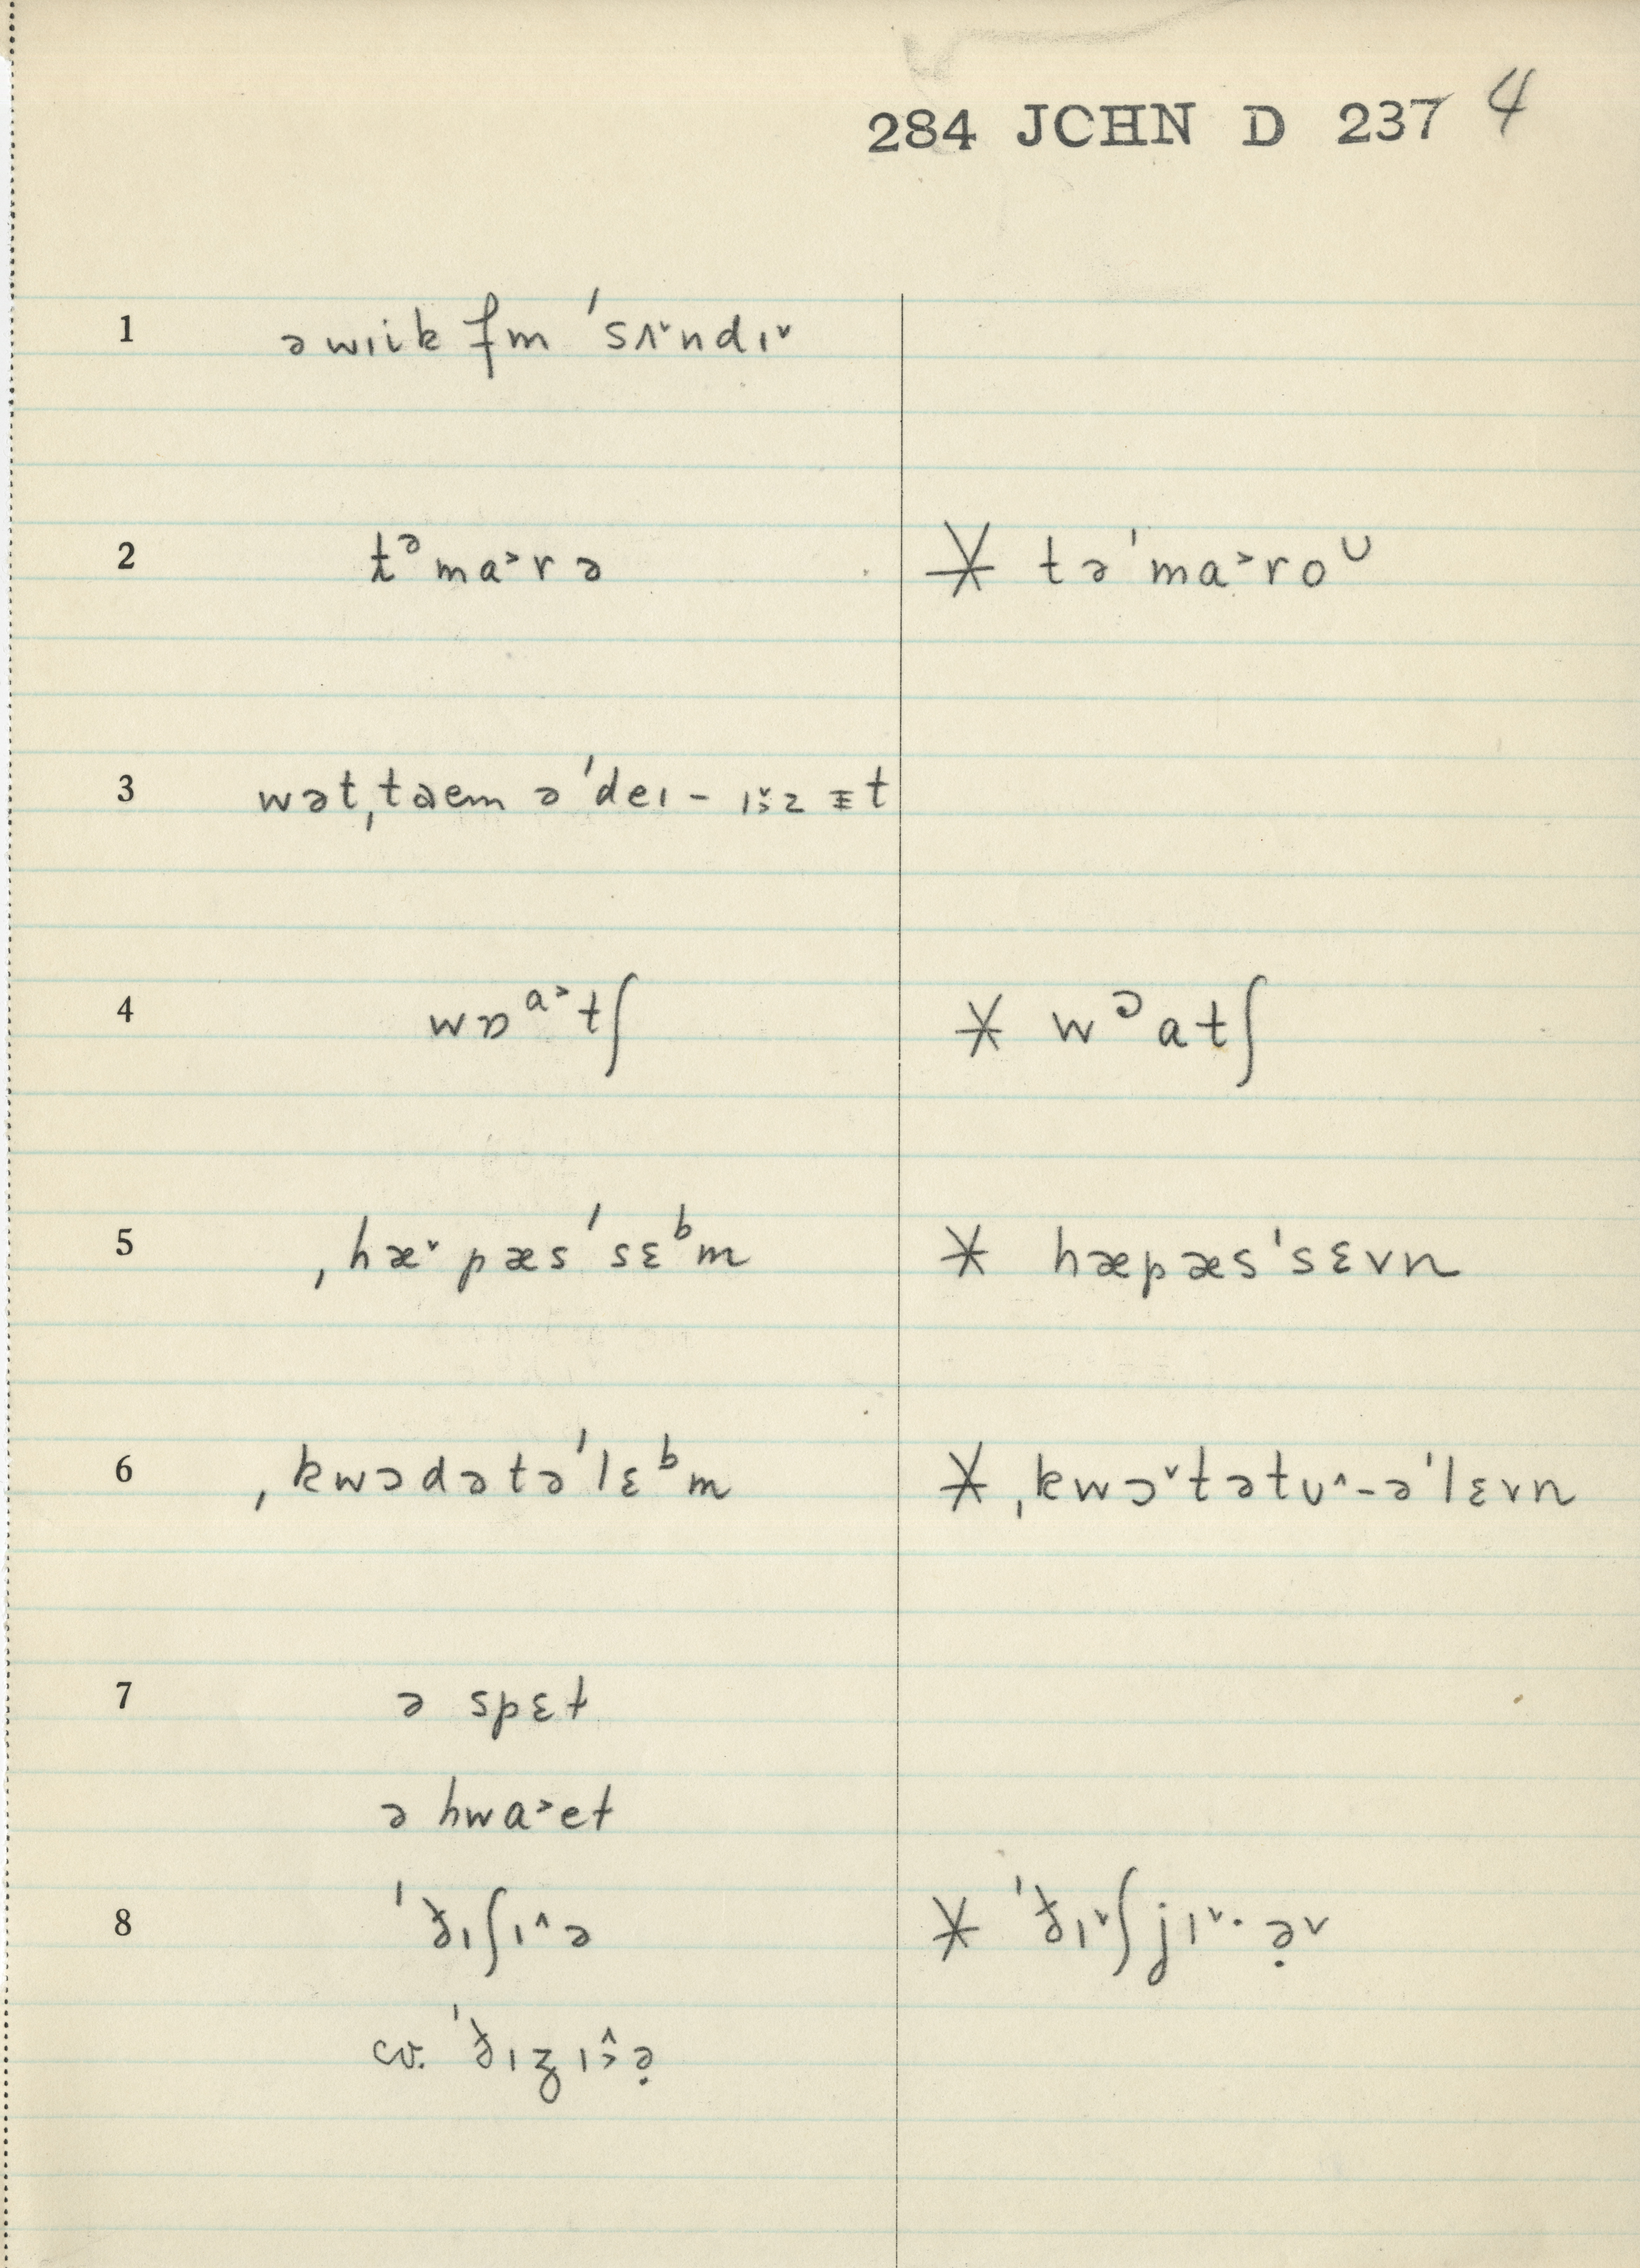 284 JCHN D 237 4
1 ə wɪik fm ˈsʌ˅ndɪ˅
2 tᵊma˃rə * təˈma˃roᶸ
3 wətˌtaem əˈdeɪ - ɪ̌˃z ᵻt
4 wɒᵃ˃tʃ * wᵓatʃ
5 ˌhæ˅pæsˈsɛᵇm * hæpæsˈsɛvn
6 ˌkwɔdətəˈlɛᵇm * ˌkwɔ˅tətʊ˄-əˈlɛvn
7 ə spɛt
ə hwa˃et
8 ˈðɪʃɪ˄ə * ˈðɪ˅ʃjɪ˅· ə̣˅
cv. ˈðɪʒɪ˄˃ə̣